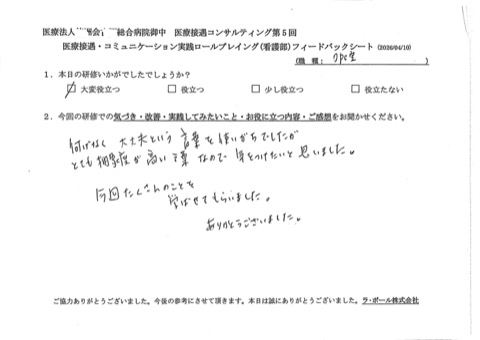 医療法人 総合病院御中 医療接遇コンサルティング第5回
医療接遇・コミュニケーション実践ロールプレイング(看護部)フィードバックシート (2026/04/10)
(職種: )
1.本日の研修いかがでしたでしょうか?
☑ 大変役立つ □ 役立つ □ 少し役立つ □ 役立たない
2.今回の研修での気づき・改善・実践してみたいこと・お役に立つ内容・ご感想をお聞かせください。
何げなく 大丈夫という 言葉を使いがちでしたが
とても 頻度が高い言葉 なので 気をつけたいと思いました。
今回たくさんのことを
学ばせてもらいました。
ありがとうございました。
ご協力ありがとうございました。今後の参考にさせて頂きます。本日は誠にありがとうございました。ラ・ポール株式会社